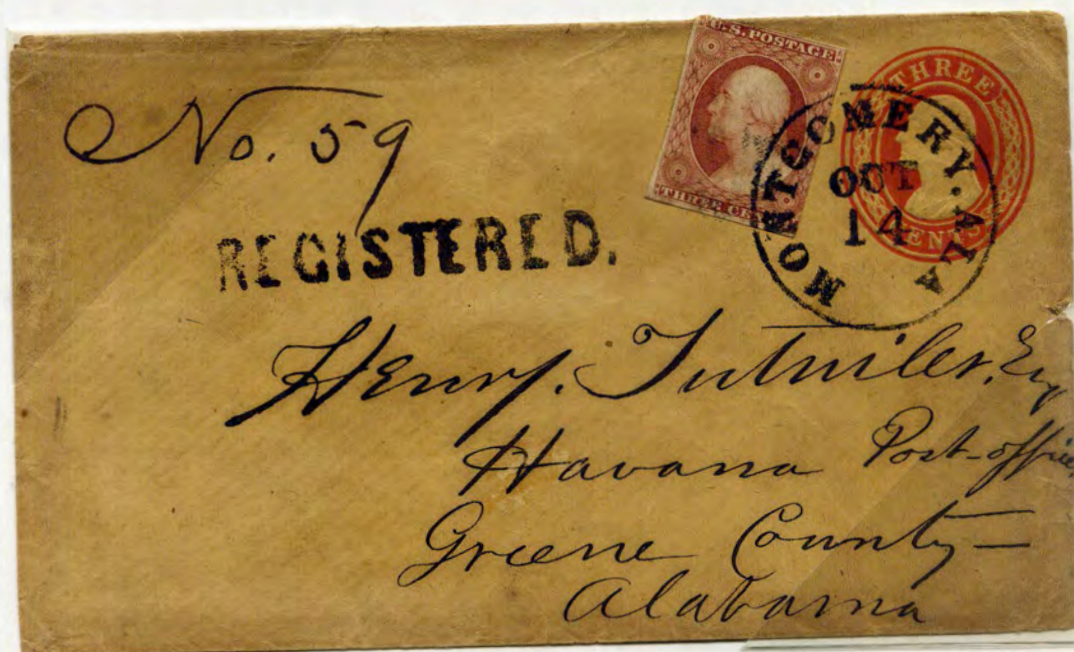 U.S. POSTAGE
THREE CENTS
THREE
CENTS
MONTGOMERY. ALA
OCT
14
No. 59
REGISTERED.
Henry. Tutwiler, Esq
Havana Post-office
Greene County—
Alabama